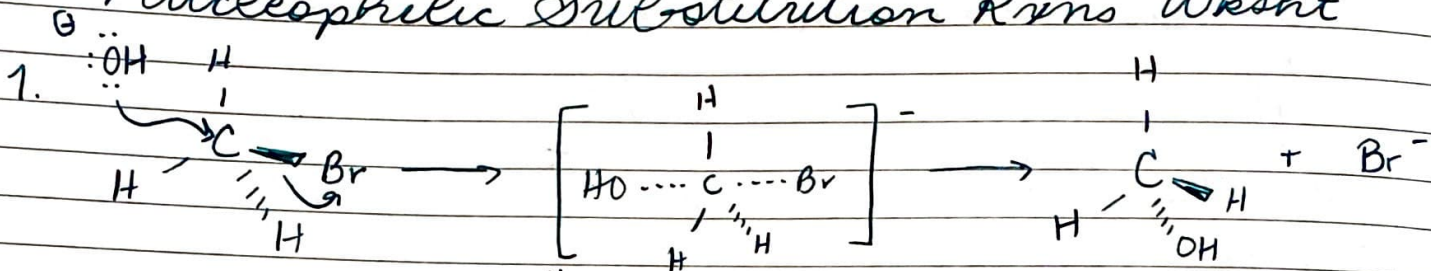 Nucleophilic Substitution Rxns Wksht
1. ⊖ :ÖH H H
C Br → [ HO ···· C ···· Br ]⁻ → C + Br⁻
H H H H H H OH